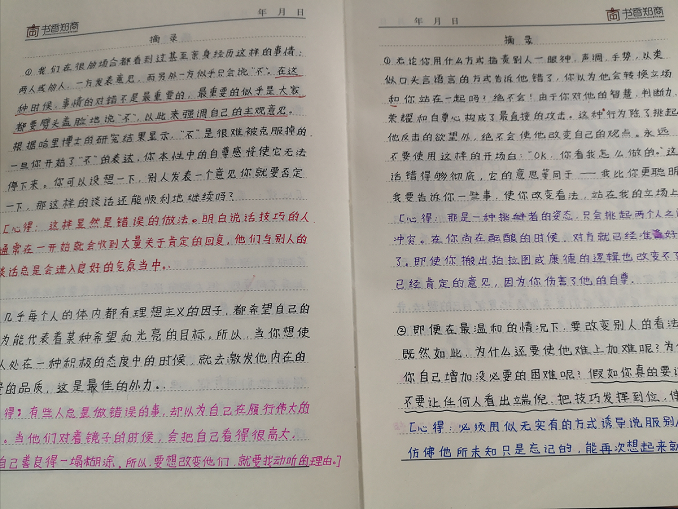 书香知商
年 月 日
摘 录
① 我们在很多场合都看到过甚至亲身经历这样的事情:
两人或多人,一方发表意见,而另外一方似乎只会说"不"。在这
种时候,事情的对错不是最重要的,最重要的似乎是大家
都要劈头盖脸地说"不",以此来强调自己的主观意见。
根据哈里博士的研究结果显示,"不"是很难被克服掉的,
一旦你开始了"不"的表达,你本性中的自尊感将使它无法
停下来。你可以设想一下,别人发表一个意见你就要否定
一下,那这样的谈话还能顺利地继续吗?
[心得:这样显然是错误的做法。明白说话技巧的人
通常在一开始就会收到大量关于肯定的回复,他们与别人的
谈话总是会进入良好的气氛当中。
几乎每个人的体内都有理想主义的因子,都希望自己的
为能代表着某种希望和光亮的目标,所以,当你想使
人处在一种积极的态度中的时候,就去激发他内在的
的品质,这是最佳的外力。
得:有些人总是做错误的事,却以为自己在履行伟大的
。当他们对着镜子的时候,会把自己看得很高大,
自己善良得一塌糊涂、所以,要想改变他们,就要找动听的理由。]
年 月 日
书香知商
摘 录
① 无论你用什么方式指责别人一眼神、声调、手势,以类
似口头言语言的方式告诉他错了,你以为他会转换立场
和你站在一起吗?绝不会!由于你对他的智慧、判断力、
荣耀和自尊心构成了最直接的攻击,这种行为除了挑起
他反击的欲望外,绝不会使他改变自己的观点。永远
不要使用这样的开场白:"Ok,你看我怎么做的。"这
话错得够彻底,它的意思等同于——我比你更聪明
我要告诉你一些事,使你改变看法,站在我的立场上
[心得:那是一种挑衅者的姿态,只会挑起两个人之间
冲突。在你尚在酝酿的时候,对方就已经准备好
了。即使你搬出柏拉图或康德的逻辑也改变不了
已经肯定的意见,因为你伤害了他的自尊。
② 即便在最温和的情况下,要改变别人的看法
既然如此,为什么还要使他难上加难呢?为什
你自己增加没必要的困难呢?假如你真的要证
不要让任何人看出端倪,把技巧发挥到位,使
[心得:必须用似无实有的方式诱导说服别人
仿佛他所未知只是忘记的,能再次想起来就